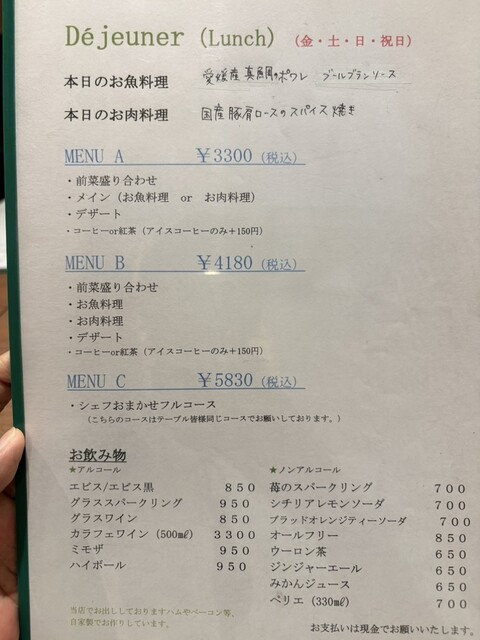 Déjeuner (Lunch) (金・土・日・祝日)
本日のお魚料理 愛媛産 真鯛のポワレ ブールブランソース
本日のお肉料理 国産豚肩ロースのスパイス焼き
MENU A ￥3300 (税込)
・前菜盛り合わせ
・メイン（お魚料理 or お肉料理）
・デザート
・コーヒーor紅茶（アイスコーヒーのみ+150円）
MENU B ￥4180 (税込)
・前菜盛り合わせ
・お魚料理
・お肉料理
・デザート
・コーヒーor紅茶（アイスコーヒーのみ+150円）
MENU C ￥5830 (税込)
・シェフおまかせフルコース
（こちらのコースはテーブル皆様同じコースでお願いしております。）
お飲み物
★アルコール
エビス/エビス黒 850
グラススパークリング 950
グラスワイン 850
カラフェワイン (500㎖) 3300
ミモザ 950
ハイボール 950
★ノンアルコール
苺のスパークリング 700
シチリアレモンソーダ 700
ブラッドオレンジティーソーダ 700
オールフリー 850
ウーロン茶 650
ジンジャーエール 650
みかんジュース 650
ペリエ (330㎖) 700
当店でお出ししておりますハムやベーコン等、
自家製でお作りしています。
お支払いは現金でお願いいたします。